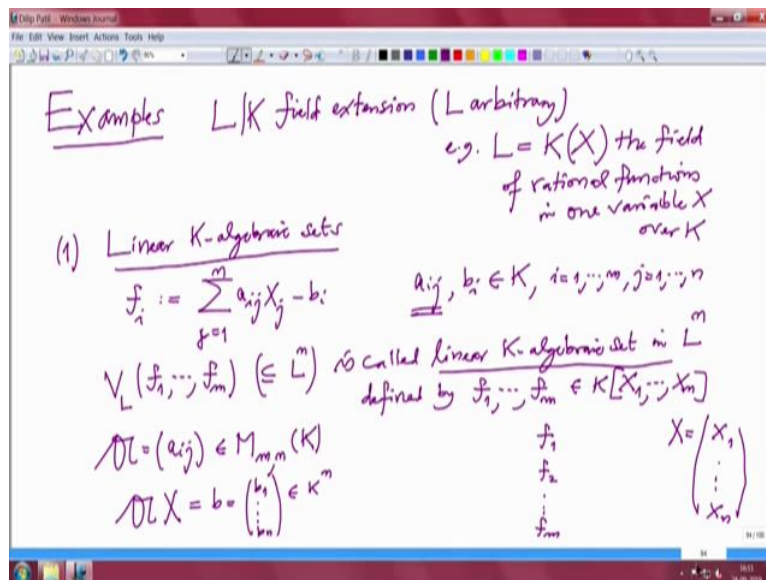 Dilip Patil - Windows Journal
File Edit View Insert Actions Tools Help
Examples L|K field extension (L arbitrary)
e.g. L = K(X) the field
of rational functions
in one variable X
over K
(1) Linear K-algebraic sets
f_i := \sum_{j=1}^{n} a_{ij} X_j - b_i    a_{ij}, b_i ∈ K, i=1,...,m, j=1,...,n
V_L(f_1,...,f_m) (⊆ L^n) is called linear K-algebraic set in L^n
defined by f_1,...,f_m ∈ K[X_1,...,X_n]
𝔄 = (a_{ij}) ∈ M_{m,n}(K)
f_1
f_2
⋮
f_m
X = (X_1 ⋮ X_n)
𝔄X = b = (b_1 ⋮ b_n) ∈ K^n
94/100
94
16:11